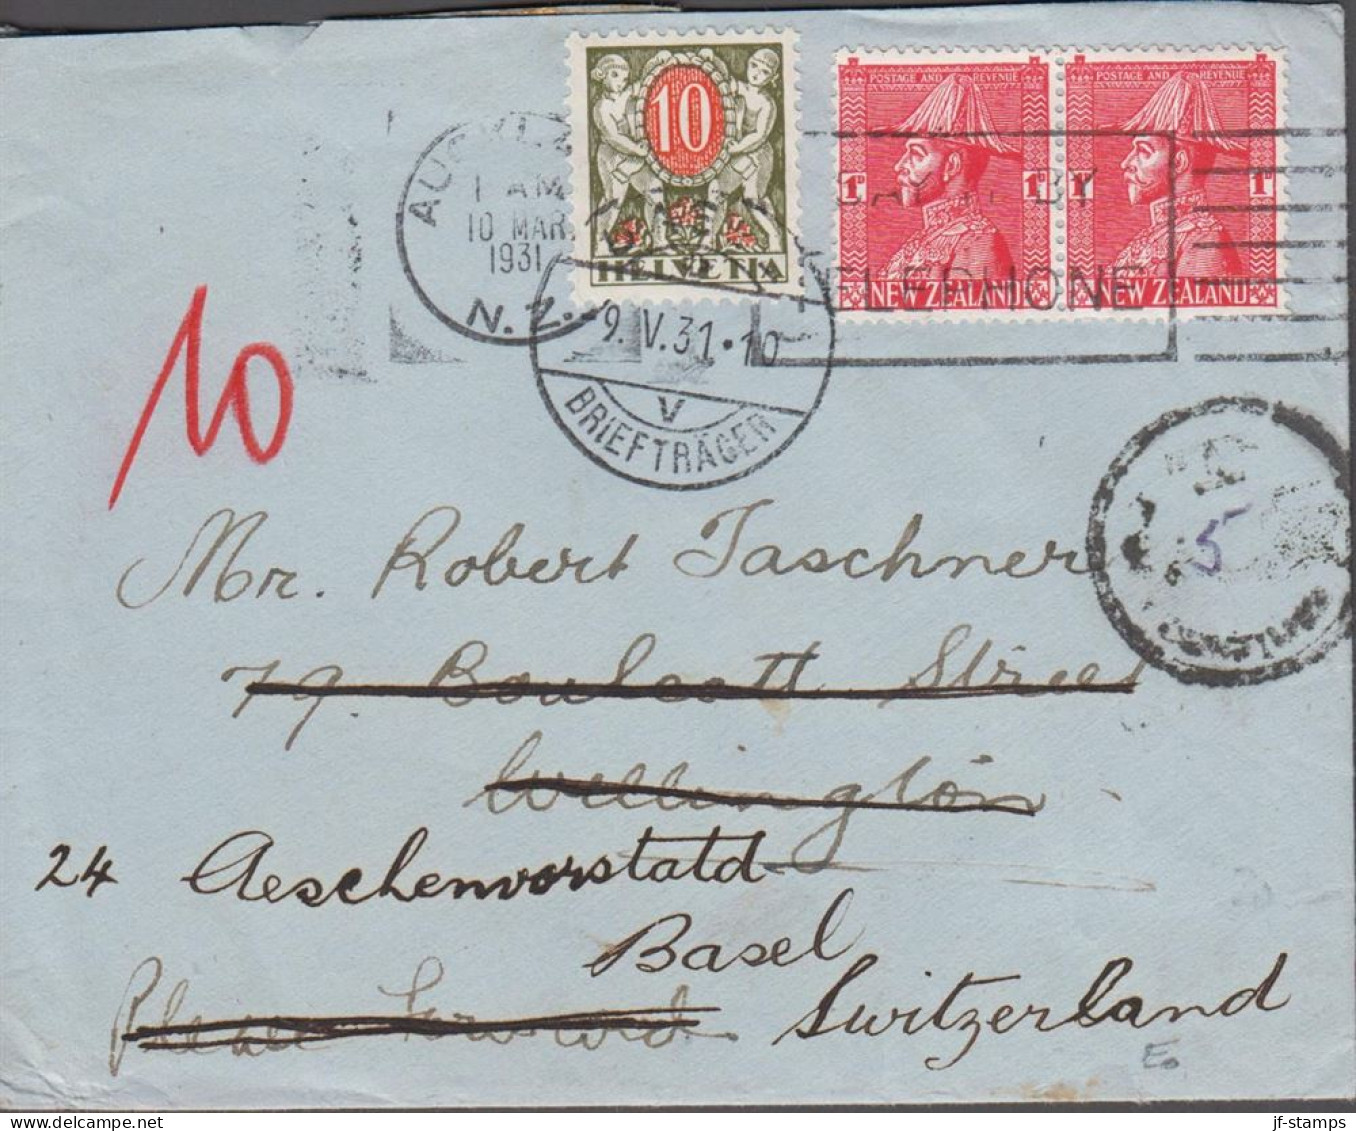 10
HELVETIA
POSTAGE AND REVENUE
1D 1D
NEW ZEALAND
POSTAGE AND REVENUE
1D 1D
NEW ZEALAND
1 AM
10 MAR
1931
N.Z.
BY
TELEPHONE
9.V.31•10
V
BRIEFTRÄGER
10
5
Mr. Robert Taschner
79 Boulcott Street
Wellington
24 Aeschenvorstatd
Basel
Switzerland
Please forward
jf-stamps